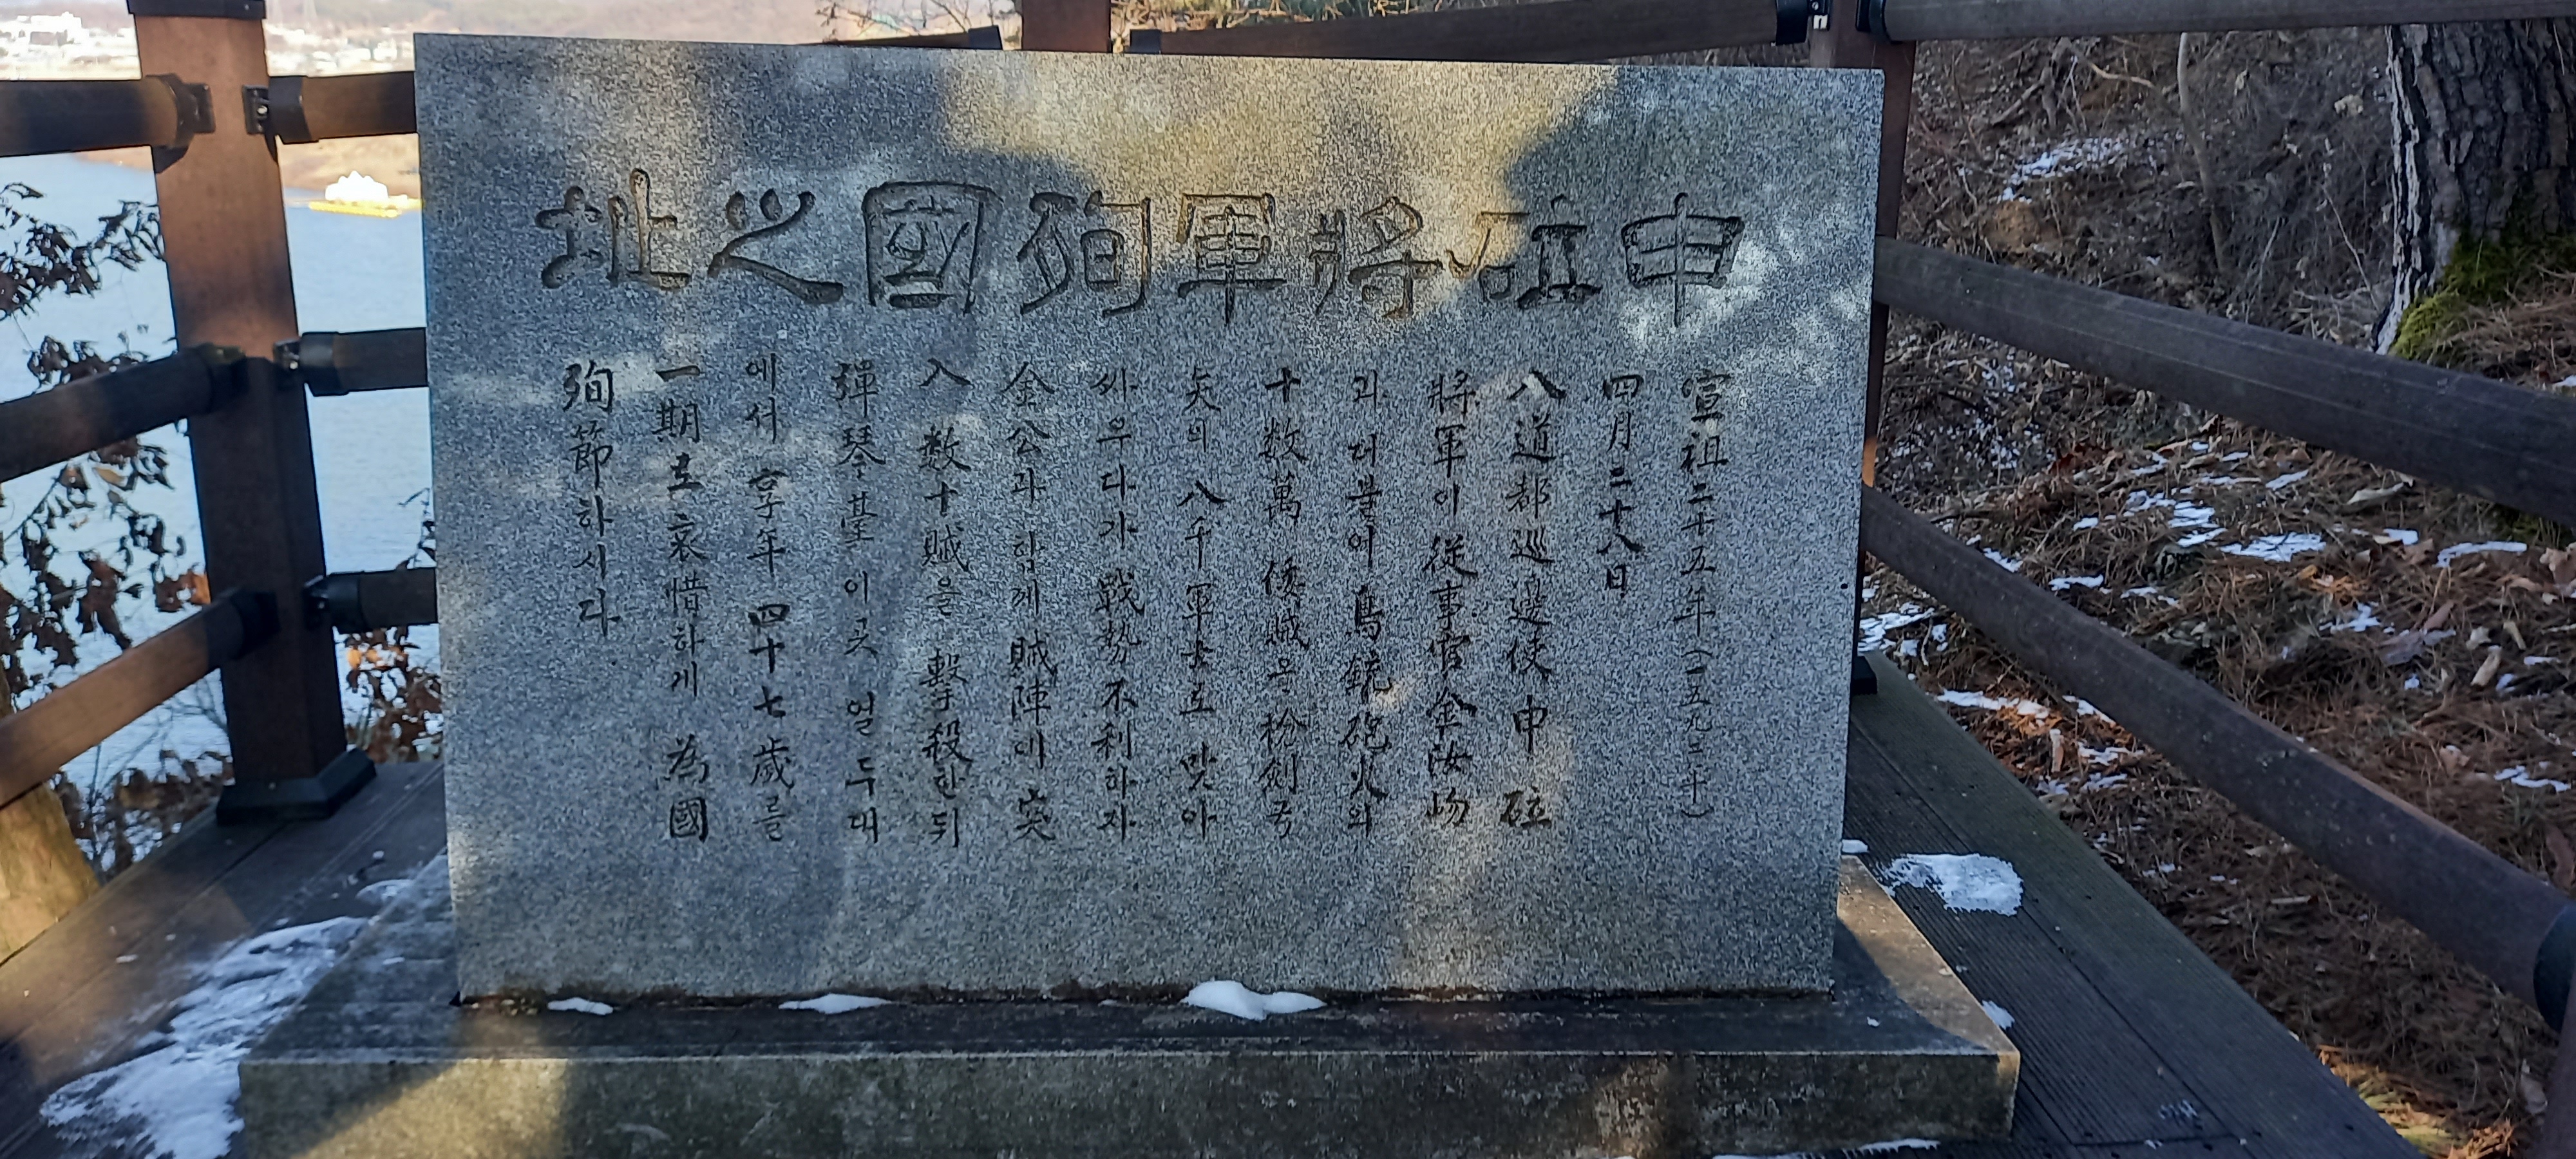 申砬將軍殉國之址
宣祖二十五年(一五九二年)
四月二十八日
八道都巡邊使 申砬
將軍이 從事官 金汝岉
과 더불어 鳥銃 砲火의
十数萬 倭賊을 槍劍弓
矢의 八千軍士로 맞아
싸우다가 戰勢不利하자
金公과 함께 賊陣에 突
入 数十賊을 擊殺한 뒤
彈琴臺 이곳 열두대
에서 享年 四十七歲를
一期로 哀惜하게 為國
殉節하시다